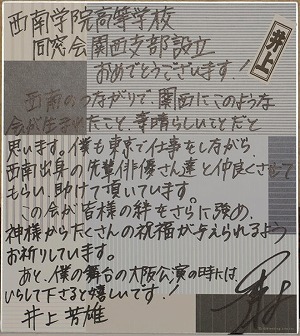 西南学院高等学校
同窓会関西支部設立
おめでとうございます！
井上
西南のつながりで、関西にこのような
会が生まれたこと、素晴らしいことだと
思います。僕も東京で仕事をしながら、
西南出身の先輩俳優さん達と仲良くさせて
もらい、助けて頂いています。
この会が皆様の絆をさらに強め、
神様からたくさんの祝福が与えられるよう
お祈りしています。
あと、僕の舞台の大阪公演の時には、
いらして下さると嬉しいです！
井上芳雄